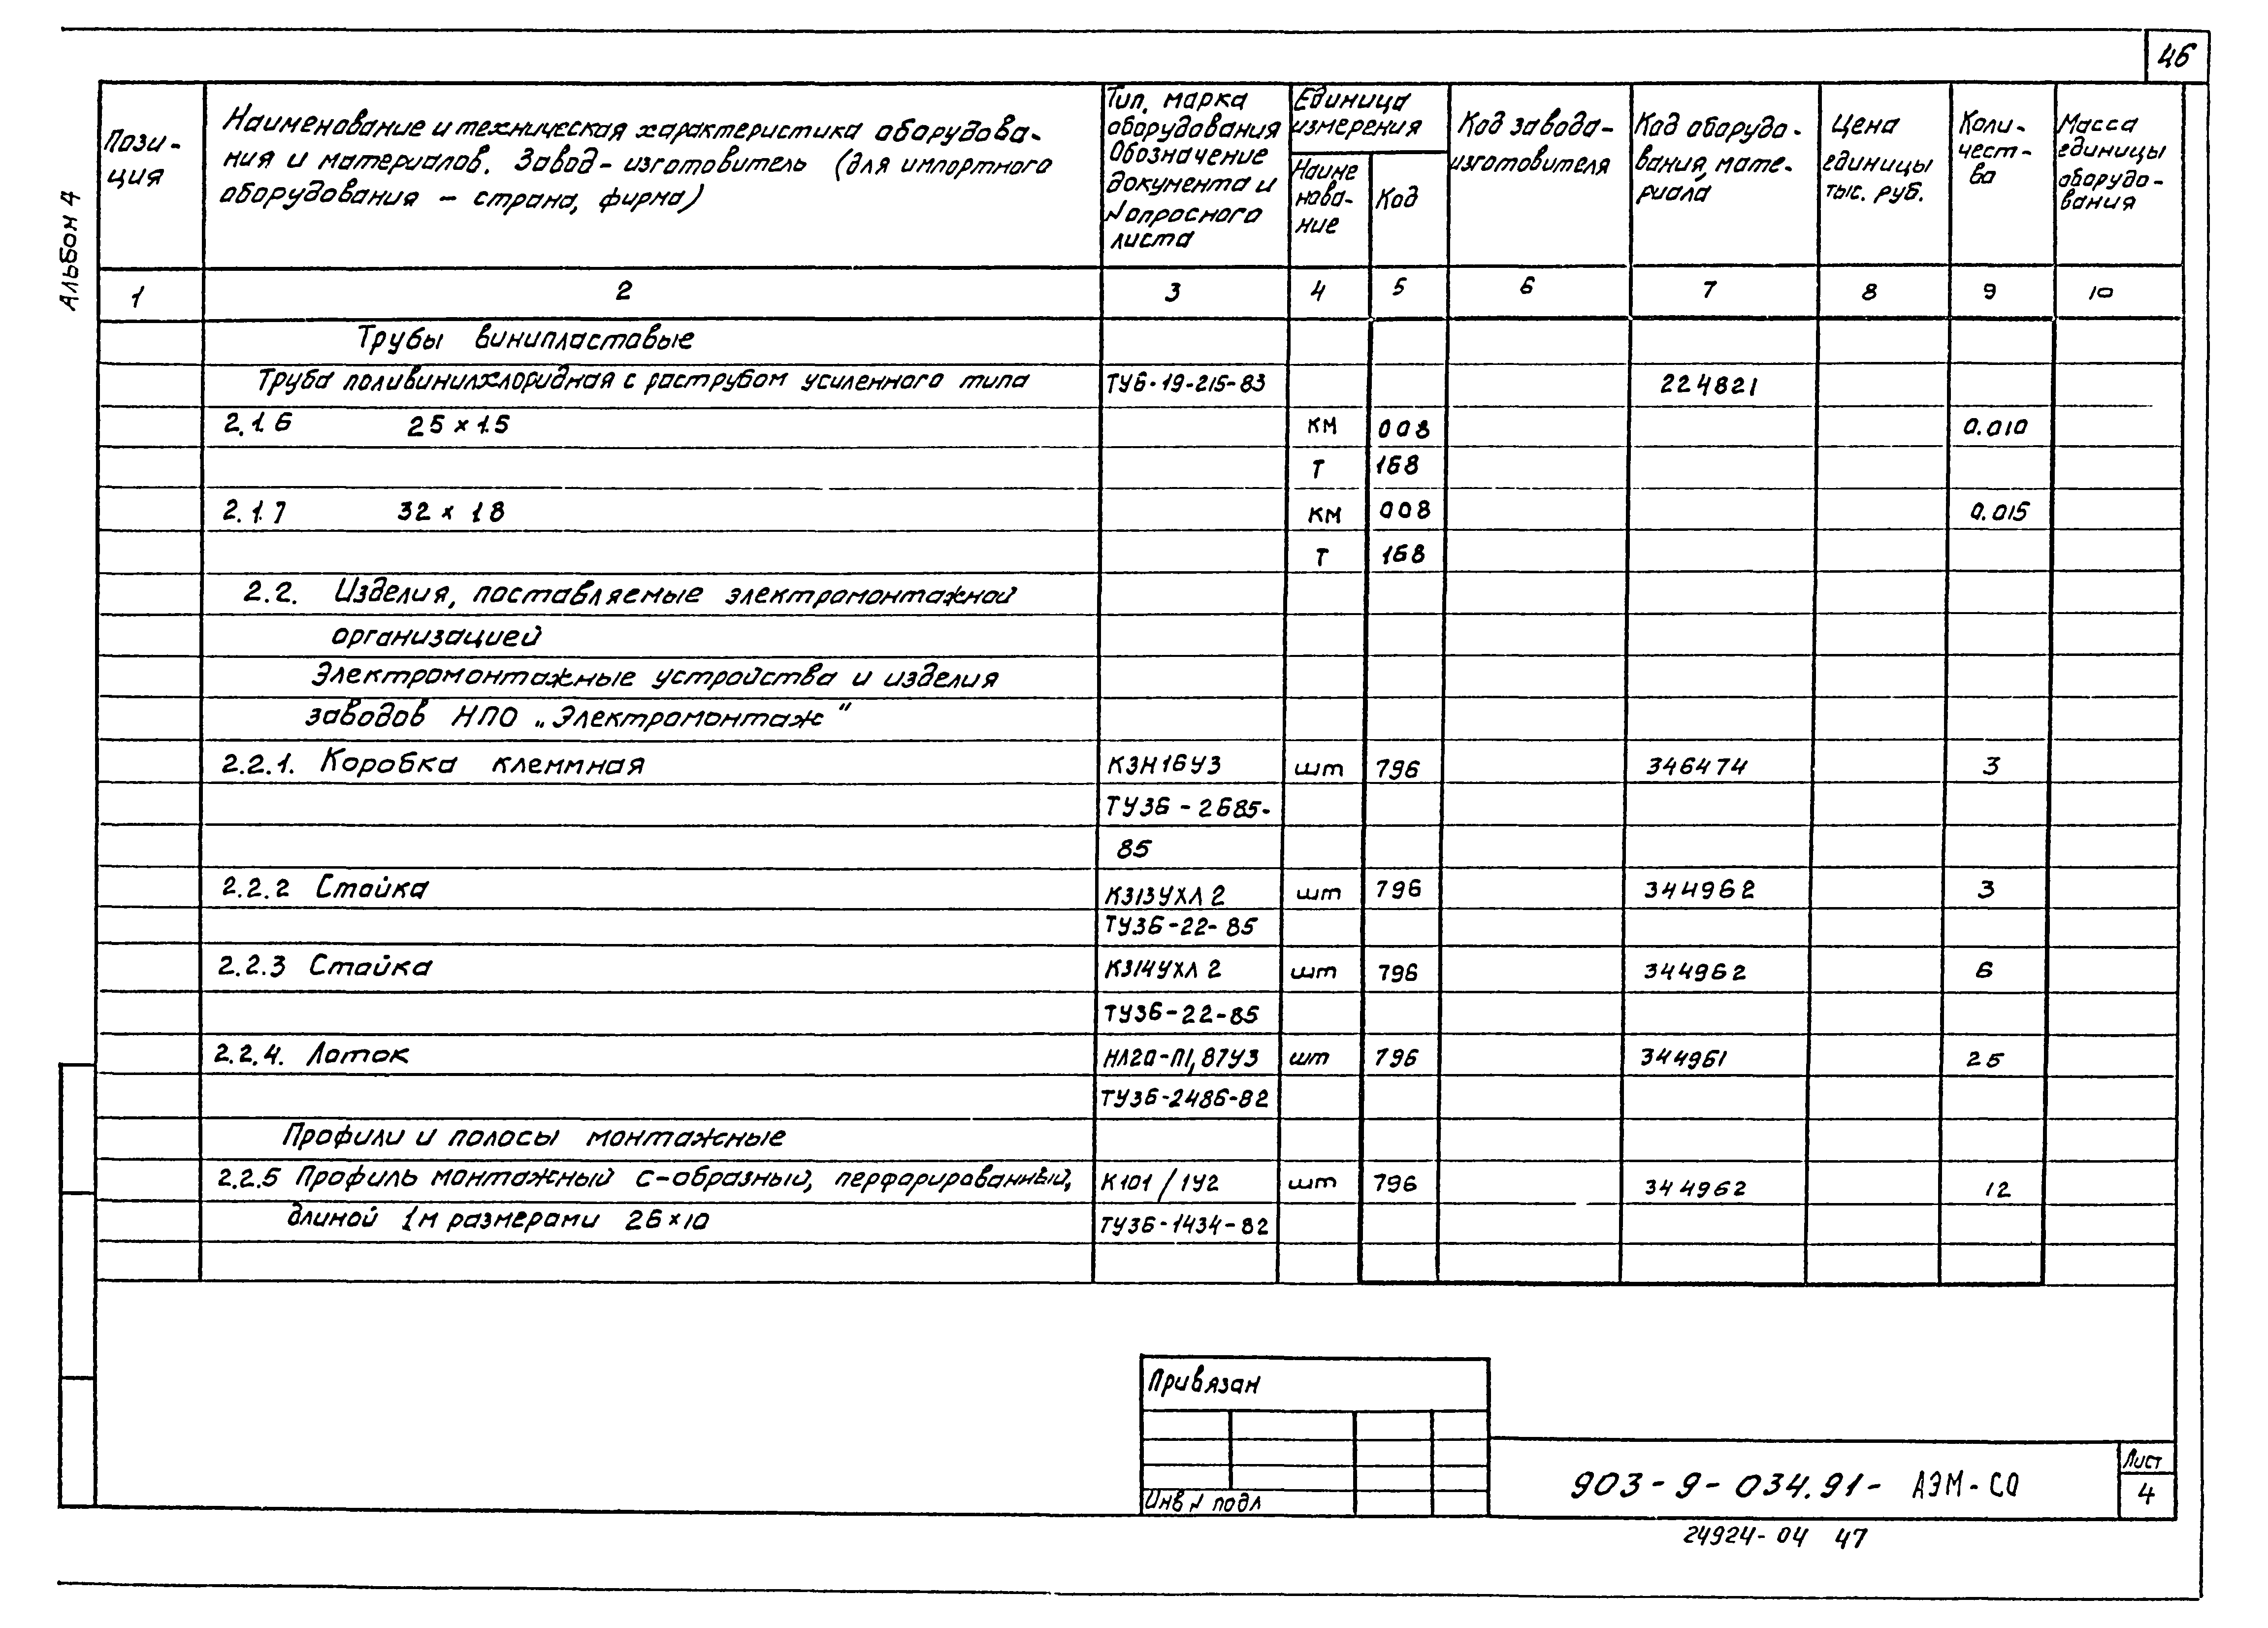 46
Альбом 4
Пози-
ция
Наименование и техническая характеристика оборудова-
ния и материалов. Завод-изготовитель (для импортного
оборудования - страна, фирма)
Тип, марка
оборудования
Обозначение
документа и
№ опросного
листа
Единица
измерения
Наиме
нова-
ние
Код
Код завода-
изготовителя
Код оборудо-
вания, мате-
риала
Цена
единицы
тыс. руб.
Коли-
чест-
ва
Масса
единицы
оборудо-
вания
1 2 3 4 5 6 7 8 9 10
Трубы винипластовые
Труба поливинилхлоридная с раструбом усиленного типа ТУ6-19-215-83 224821
2.1.6 25 × 1.5 км 008 0.010
т 168
2.1.7 32 × 1.8 км 008 0.015
т 168
2.2. Изделия, поставляемые электромонтажной
организацией
Электромонтажные устройства и изделия
заводов НПО „Электромонтаж"
2.2.1. Коробка клеммная КЗН16У3 шт 796 346474 3
ТУ36-2685-
85
2.2.2 Стойка К313УХЛ2 шт 796 344962 3
ТУ36-22-85
2.2.3 Стойка К314УХЛ2 шт 796 344962 6
ТУ36-22-85
2.2.4. Лоток НЛ20-П1,87У3 шт 796 344961 25
ТУ36-2486-82
Профили и полосы монтажные
2.2.5 Профиль монтажный с-образный, перфорированный, К101/1У2 шт 796 344962 12
длиной 1м размерами 26×10 ТУ36-1434-82
Привязан
Инв № подл
903-9-034.91- АЭМ-СО
Лист
4
24924-04 47